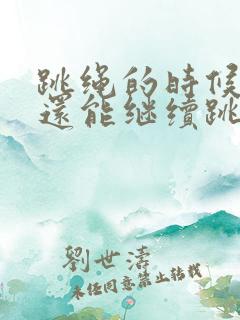 跳绳的時候
還能继續跳
劉世濤
未经同意禁止转载